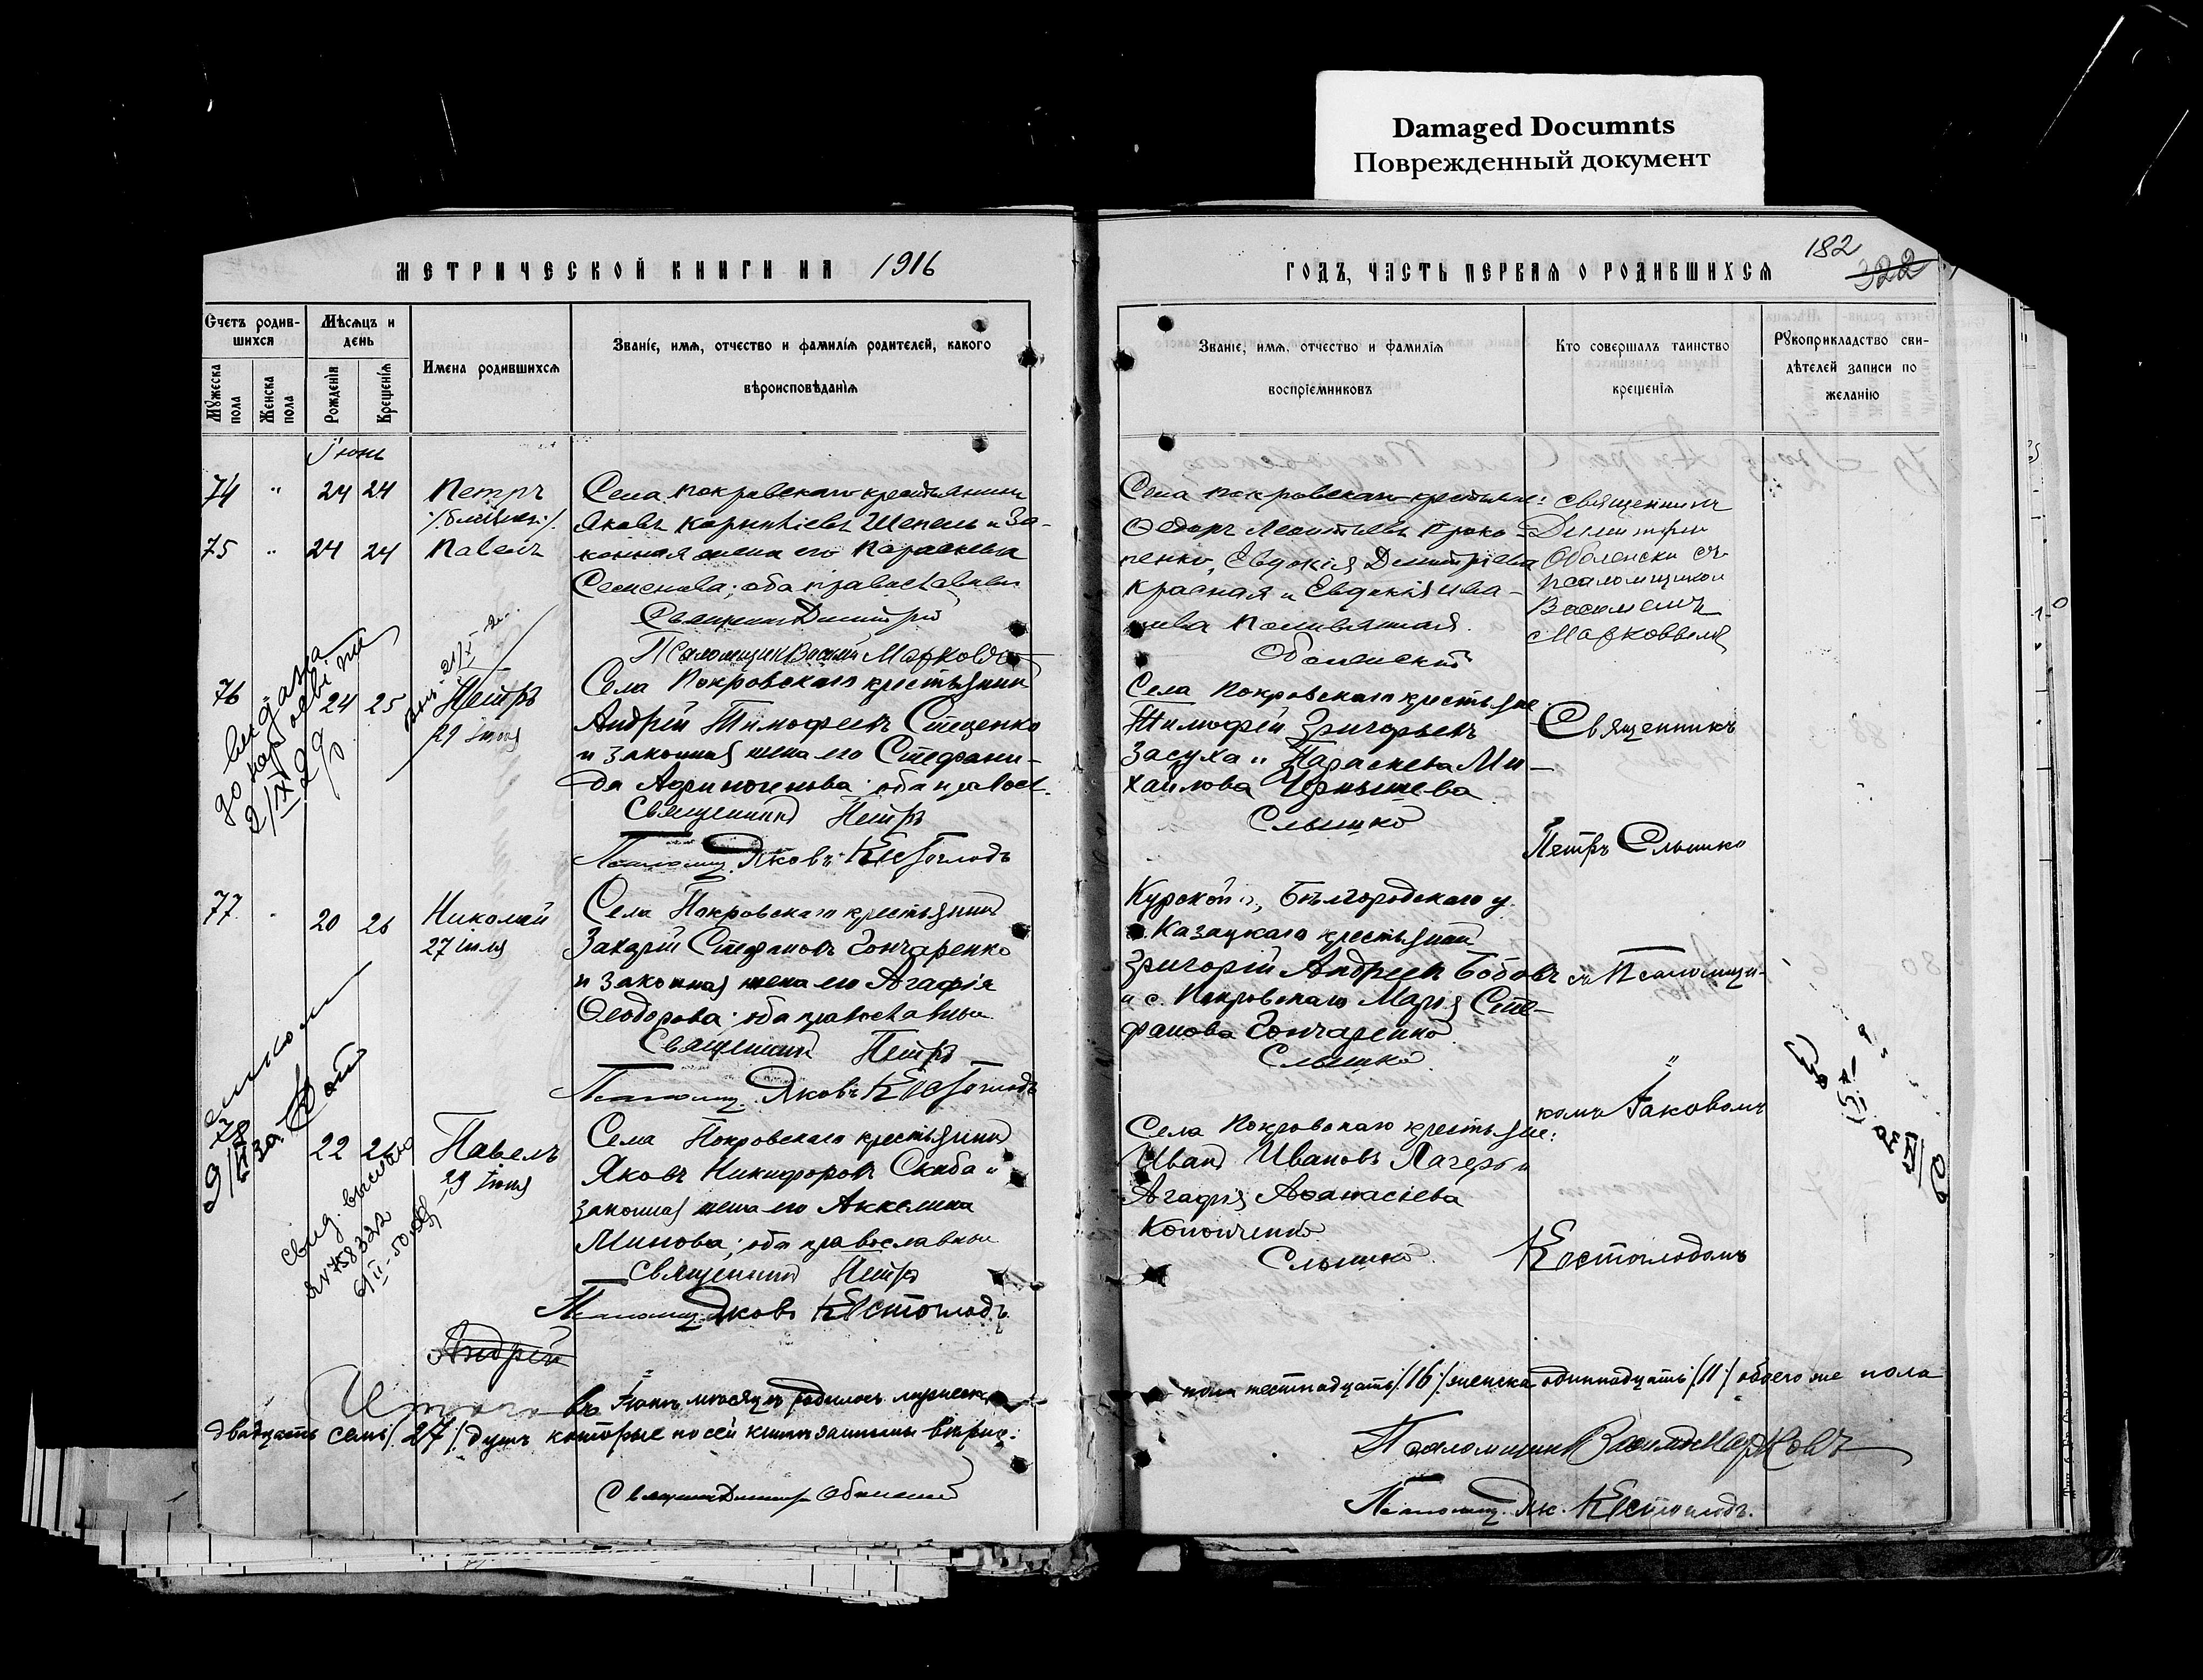 Damaged Documnts
Поврежденный документ
МЕТРИЧЕСКОЙ КНИГИ НА 1916
Счетъ родив-
шихся
Мѣсяцъ и
день
Мужеска
пола
Женска
пола
Рожденія
Крещенія
Имена родившихся
Званіе, имя, отчество и фамилія родителей, какого
вѣроисповѣданія
Іюнь
74 " 24 24 Петръ
/близнец:/
75 " 24 24 Павелъ
Села Покровскаго крестьянинъ
Яковъ Корниліевъ Шепель и за-
конная жена его Параскева
Семенова; оба православны
Священник Димитрій
Псаломщик Василій Марковъ
76 24 25 Петръ
29 Іюня
Села Покровскаго крестьянин
Андрей Тимофеевъ Стеценко
и законная жена его Стефани-
да ; оба правосл.
Священникъ Петръ
Псаломщ. Яковъ
видана
до
2/IX 29 р
77 20 26 Николай
27 іюля
Села Покровскаго крестьянинъ
Захарій Стефановъ Гончаренко
и законная жена его Агафія
Ѳеодорова; оба православные
Священникъ Петръ
Псаломщ. Яковъ
78 22 26 Павелъ
29 Іюня
Села Покровскаго крестьянинъ
Яковъ Никифоровъ Скиба и
законная жена его Акилина
Минова; оба православные
Священникъ Петръ
Псаломщ. Яковъ
свид. выслано
Андрей
Итого въ Іюнѣ мѣсяцѣ родилось мужеск.
двадцать семь /27/ душъ которые по сей книгѣ записаны вѣрно:
Священник Димитр Оболенскій
ГОДЪ, ЧАСТЬ ПЕРВАЯ О РОДИВШИХСЯ
182
322
Званіе, имя, отчество и фамилія
воспріемниковъ
Кто совершалъ таинство
крещенія
Рукоприкладство сви-
дѣтелей записи по
желанію
Села Покровскаго крестьяне:
Ѳедоръ Леонтьевъ Проко-
пенко, Евдокія Димитріева
Красная и Евдокія Ива-
нова
Оболенскій
Священникъ
Димитрій
Оболенскій съ
псаломщикомъ
Василіемъ
Марковымъ
Села Покровскаго крестьяне
Тимофей Григорьевъ
Засуха и Параскева Ми-
хайлова Чернышева
Слышко
Священникъ
Петръ Слышко
Курской г., Бѣлгородскаго у.
с. Казацкаго крестьянинъ
Григорій Андреевъ Бобовъ
и с. Покровскаго Марія Сте-
фанова Гончаренко
Слышко
съ Псаломщи-
комъ Іаковомъ
Села Покровскаго крестьяне:
Иванъ Ивановъ Лагеръ и
Агафія Аѳанасіева
Кононченко
Слышко
пола шестнадцать /16/ женска одиннадцать /11/ обоего же пола
Псаломщик Василій Марковъ
Псаломщ. Як.